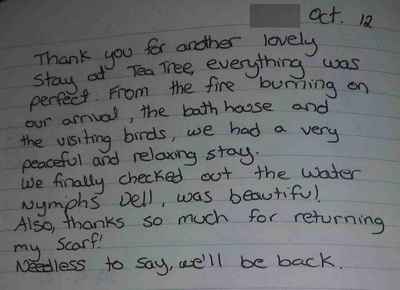 Oct. 12
Thank you for another lovely
stay at Tea Tree, everything was
perfect. From the fire burning on
our arrival, the bath house and
the visiting birds, we had a very
peaceful and relaxing stay.
We finally checked out the Water
Nymphs Dell, was beautiful!
Also, thanks so much for returning
my scarf!
Needless to say, we'll be back.